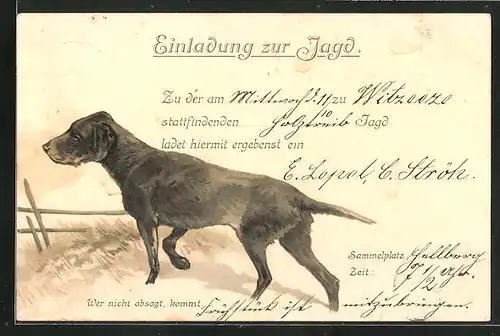 Einladung zur Jagd.
Zu der am Mittwoch d. 11/10 zu Witzeeze
stattfindenden Holztreib Jagd
ladet hiermit ergebenst ein
E. Lopel, C. Ströh.
Sammelplatz Hellberg
Zeit: 7 1/2 Uhr
Wer nicht absagt, kommt. Frühstück ist mitzubringen.